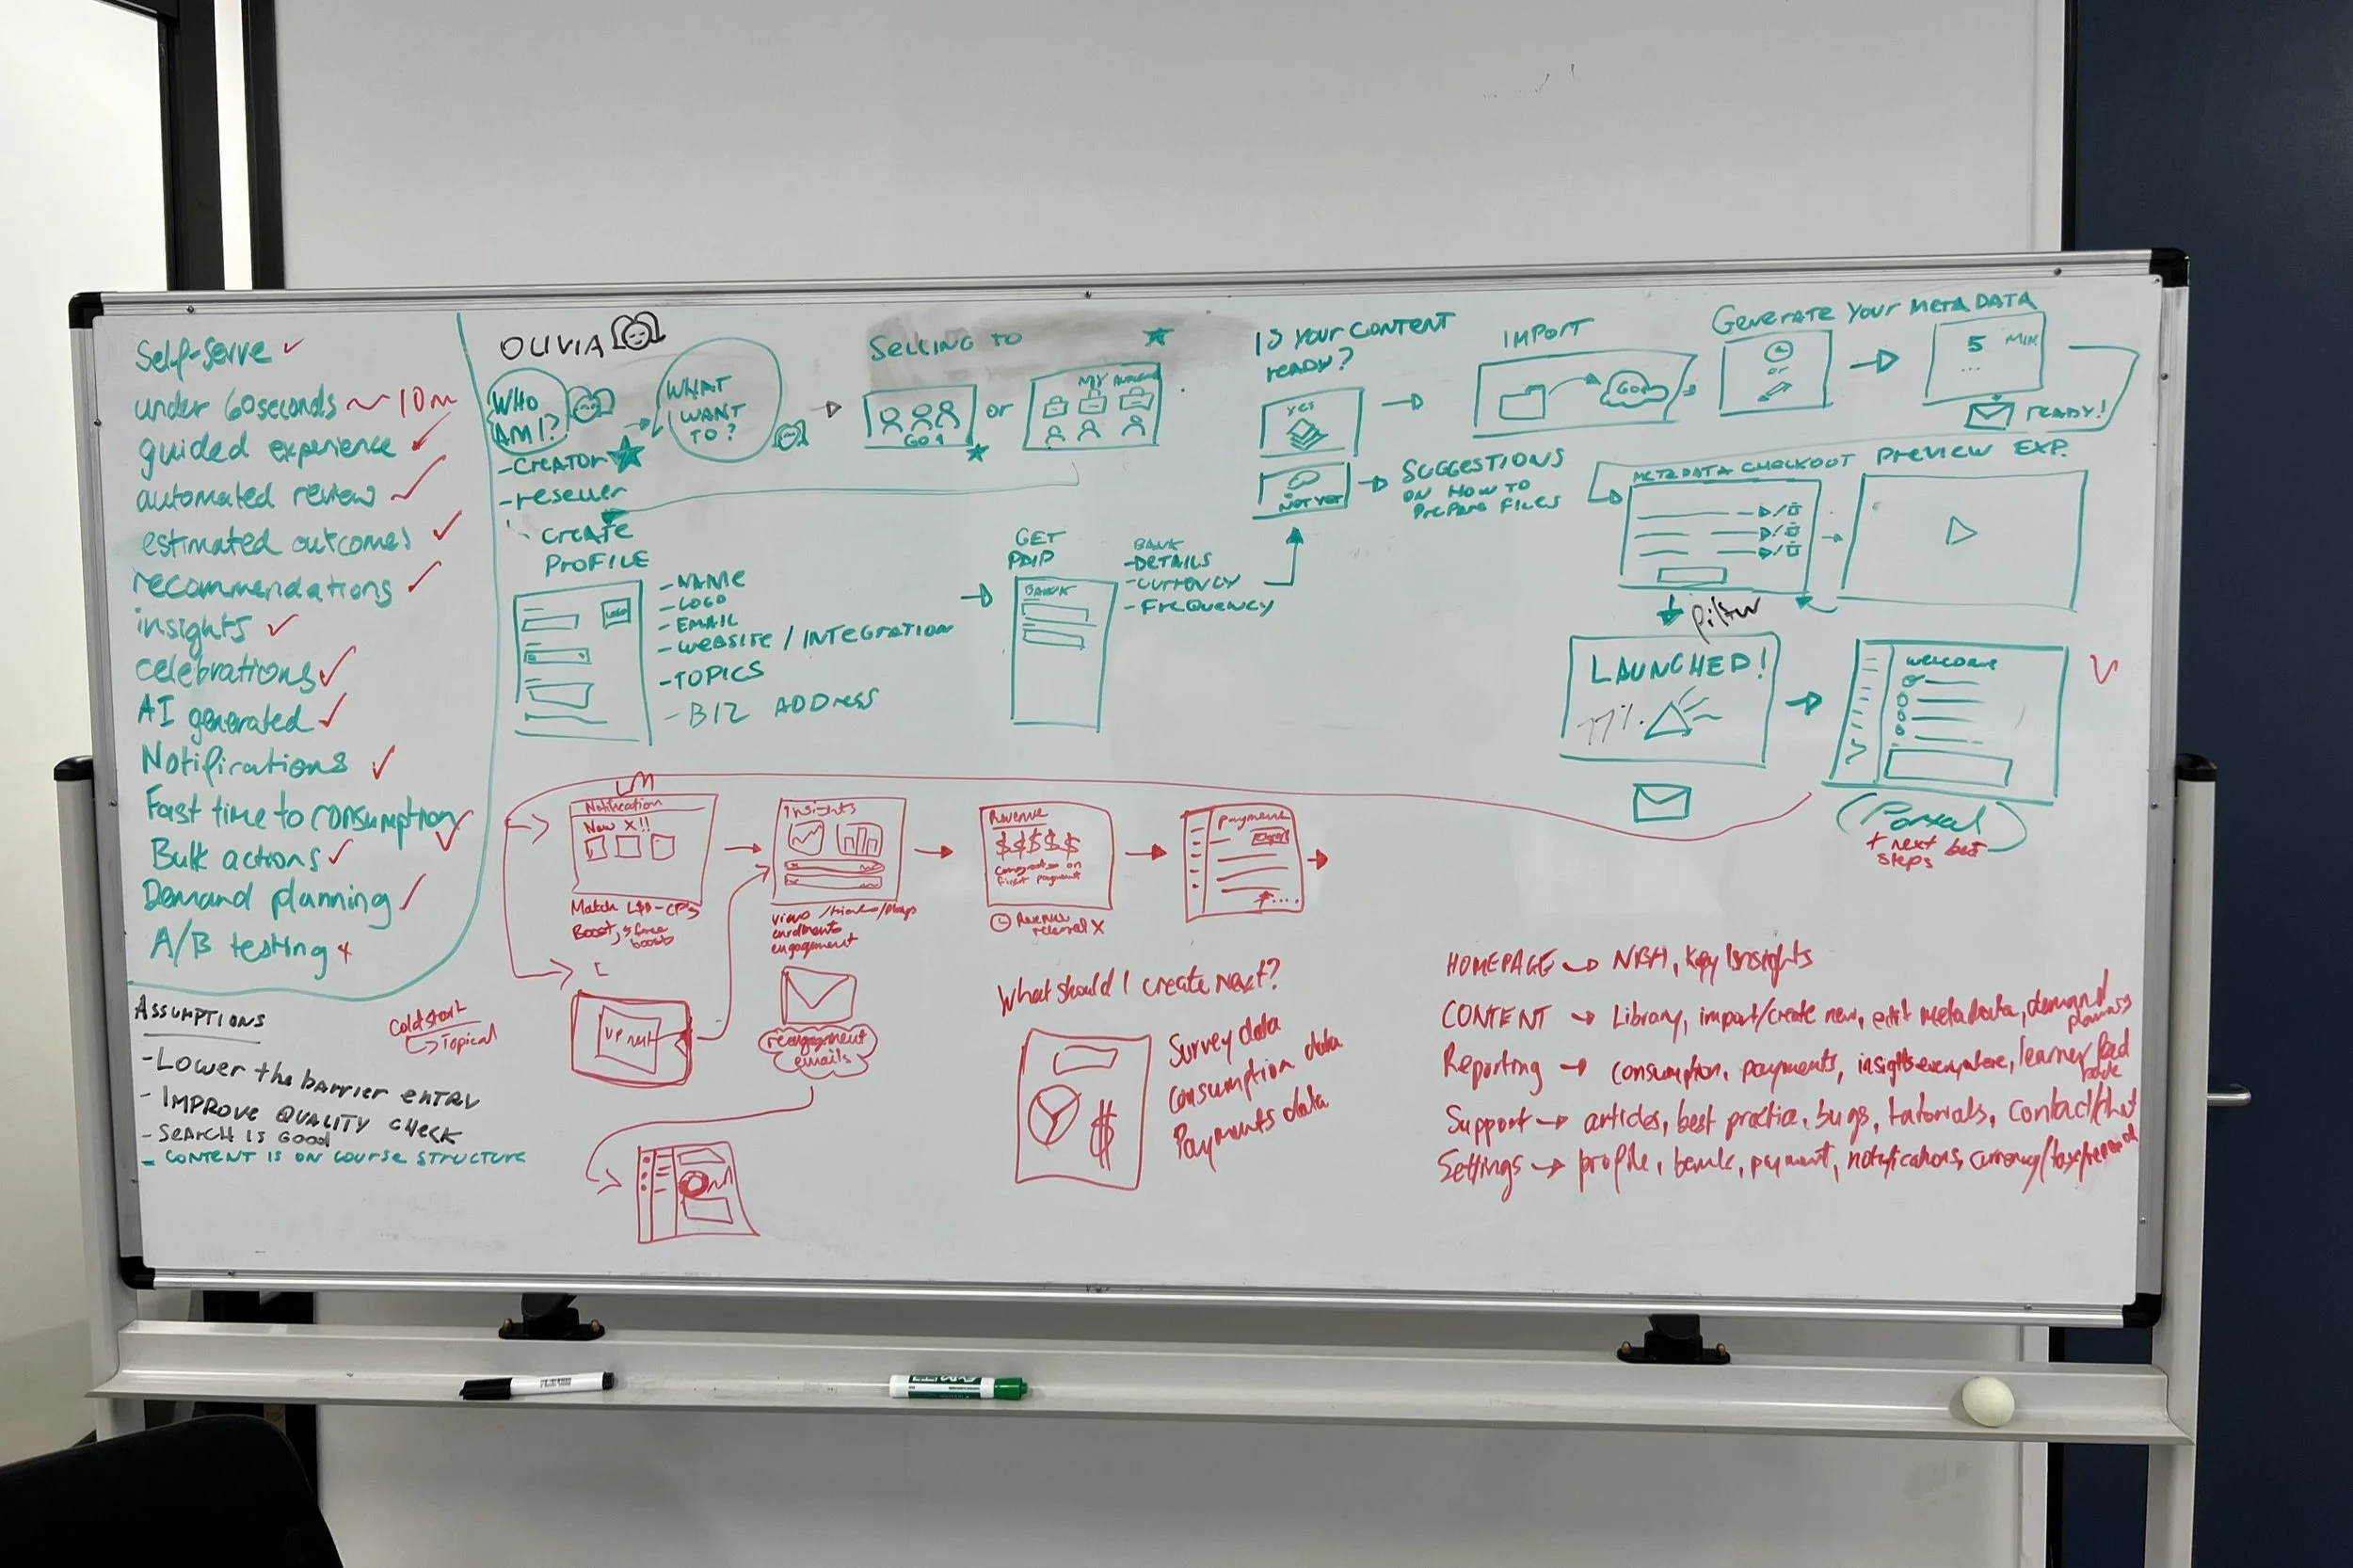 Self-serve
under 60seconds ~ 10m
guided experience
automated review
estimated outcomes
recommendations
insights
celebrations
AI generated
Notifications
Fast time to consumption
Bulk actions
Demand planning
A/B testing
ASSUMPTIONS
- LOWER the BARRIER ENTRY
- IMPROVE QUALITY CHECK
- SEARCH IS GOOD
- CONTENT IS ON COURSE STRUCTURE
Cold start
Topical
OLIVIA
WHO
AM I?
- CREATOR
- reseller
WHAT
I WANT
TO?
SELLING TO
GO1
or
MY
CREATE
PROFILE
LOGO
- NAME
- LOGO
- EMAIL
- WEBSITE / INTEGRATION
- TOPICS
- BIZ ADDRESS
GET
PAID
BANK
BANK
- DETAILS
- CURRENCY
- FREQUENCY
IS YOUR CONTENT
READY?
YES
NOT YET
SUGGESTIONS
ON HOW TO
PREPARE FILES
IMPORT
GO1
GENERATE YOUR META DATA
or
5 MIN
...
READY!
METADATA CHECKOUT
PREVIEW EXP.
LAUNCHED!
welcome
Portal
+ next best
steps
Notification
New X!!
Boost, 5 free
boosts
Insights
enrolments
engagement
Revenue
$$$$$
congrats on
first payment
Revenue
referral X
payment
up next
reengagement
emails
What should I create next?
$
Survey data
Consumption data
Payments data
HOMEPAGE → NBA, Key Insights
CONTENT → Library, import/create new, edit metadata, demand planning
Reporting → consumption, payments, insights everywhere, learner
Support → articles, best practice, bugs, tutorials, contact/chat
Settings → profile, bank, payment, notifications, currency/tax/